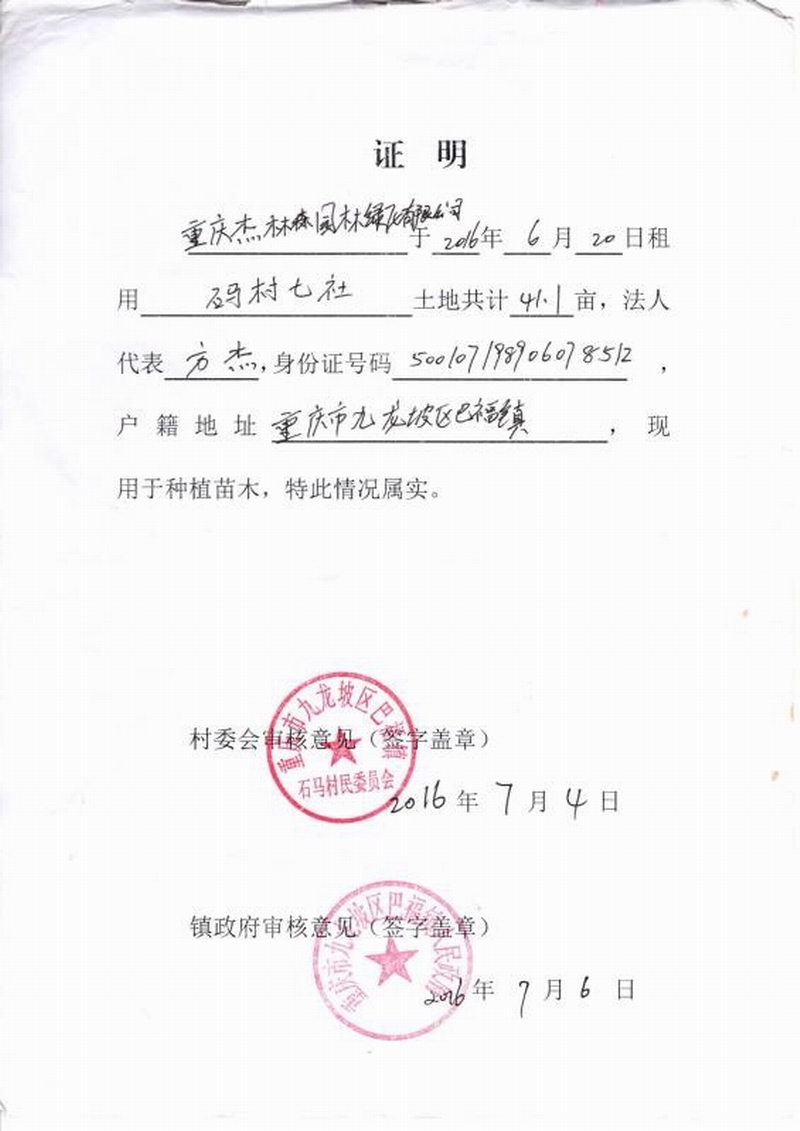 证 明
重庆杰林森园林绿化有限公司于2016年6月20日租
用码村七社土地共计41.1亩，法人
代表方杰，身份证号码500107198906078512，
户籍地址重庆市九龙坡区巴福镇，现
用于种植苗木，特此情况属实。
重庆市九龙坡区巴福镇
村委会审核意见（签字盖章）
石马村民委员会
2016年7月4日
重庆市九龙坡区巴福镇人民政府
镇政府审核意见（签字盖章）
2016年7月6日